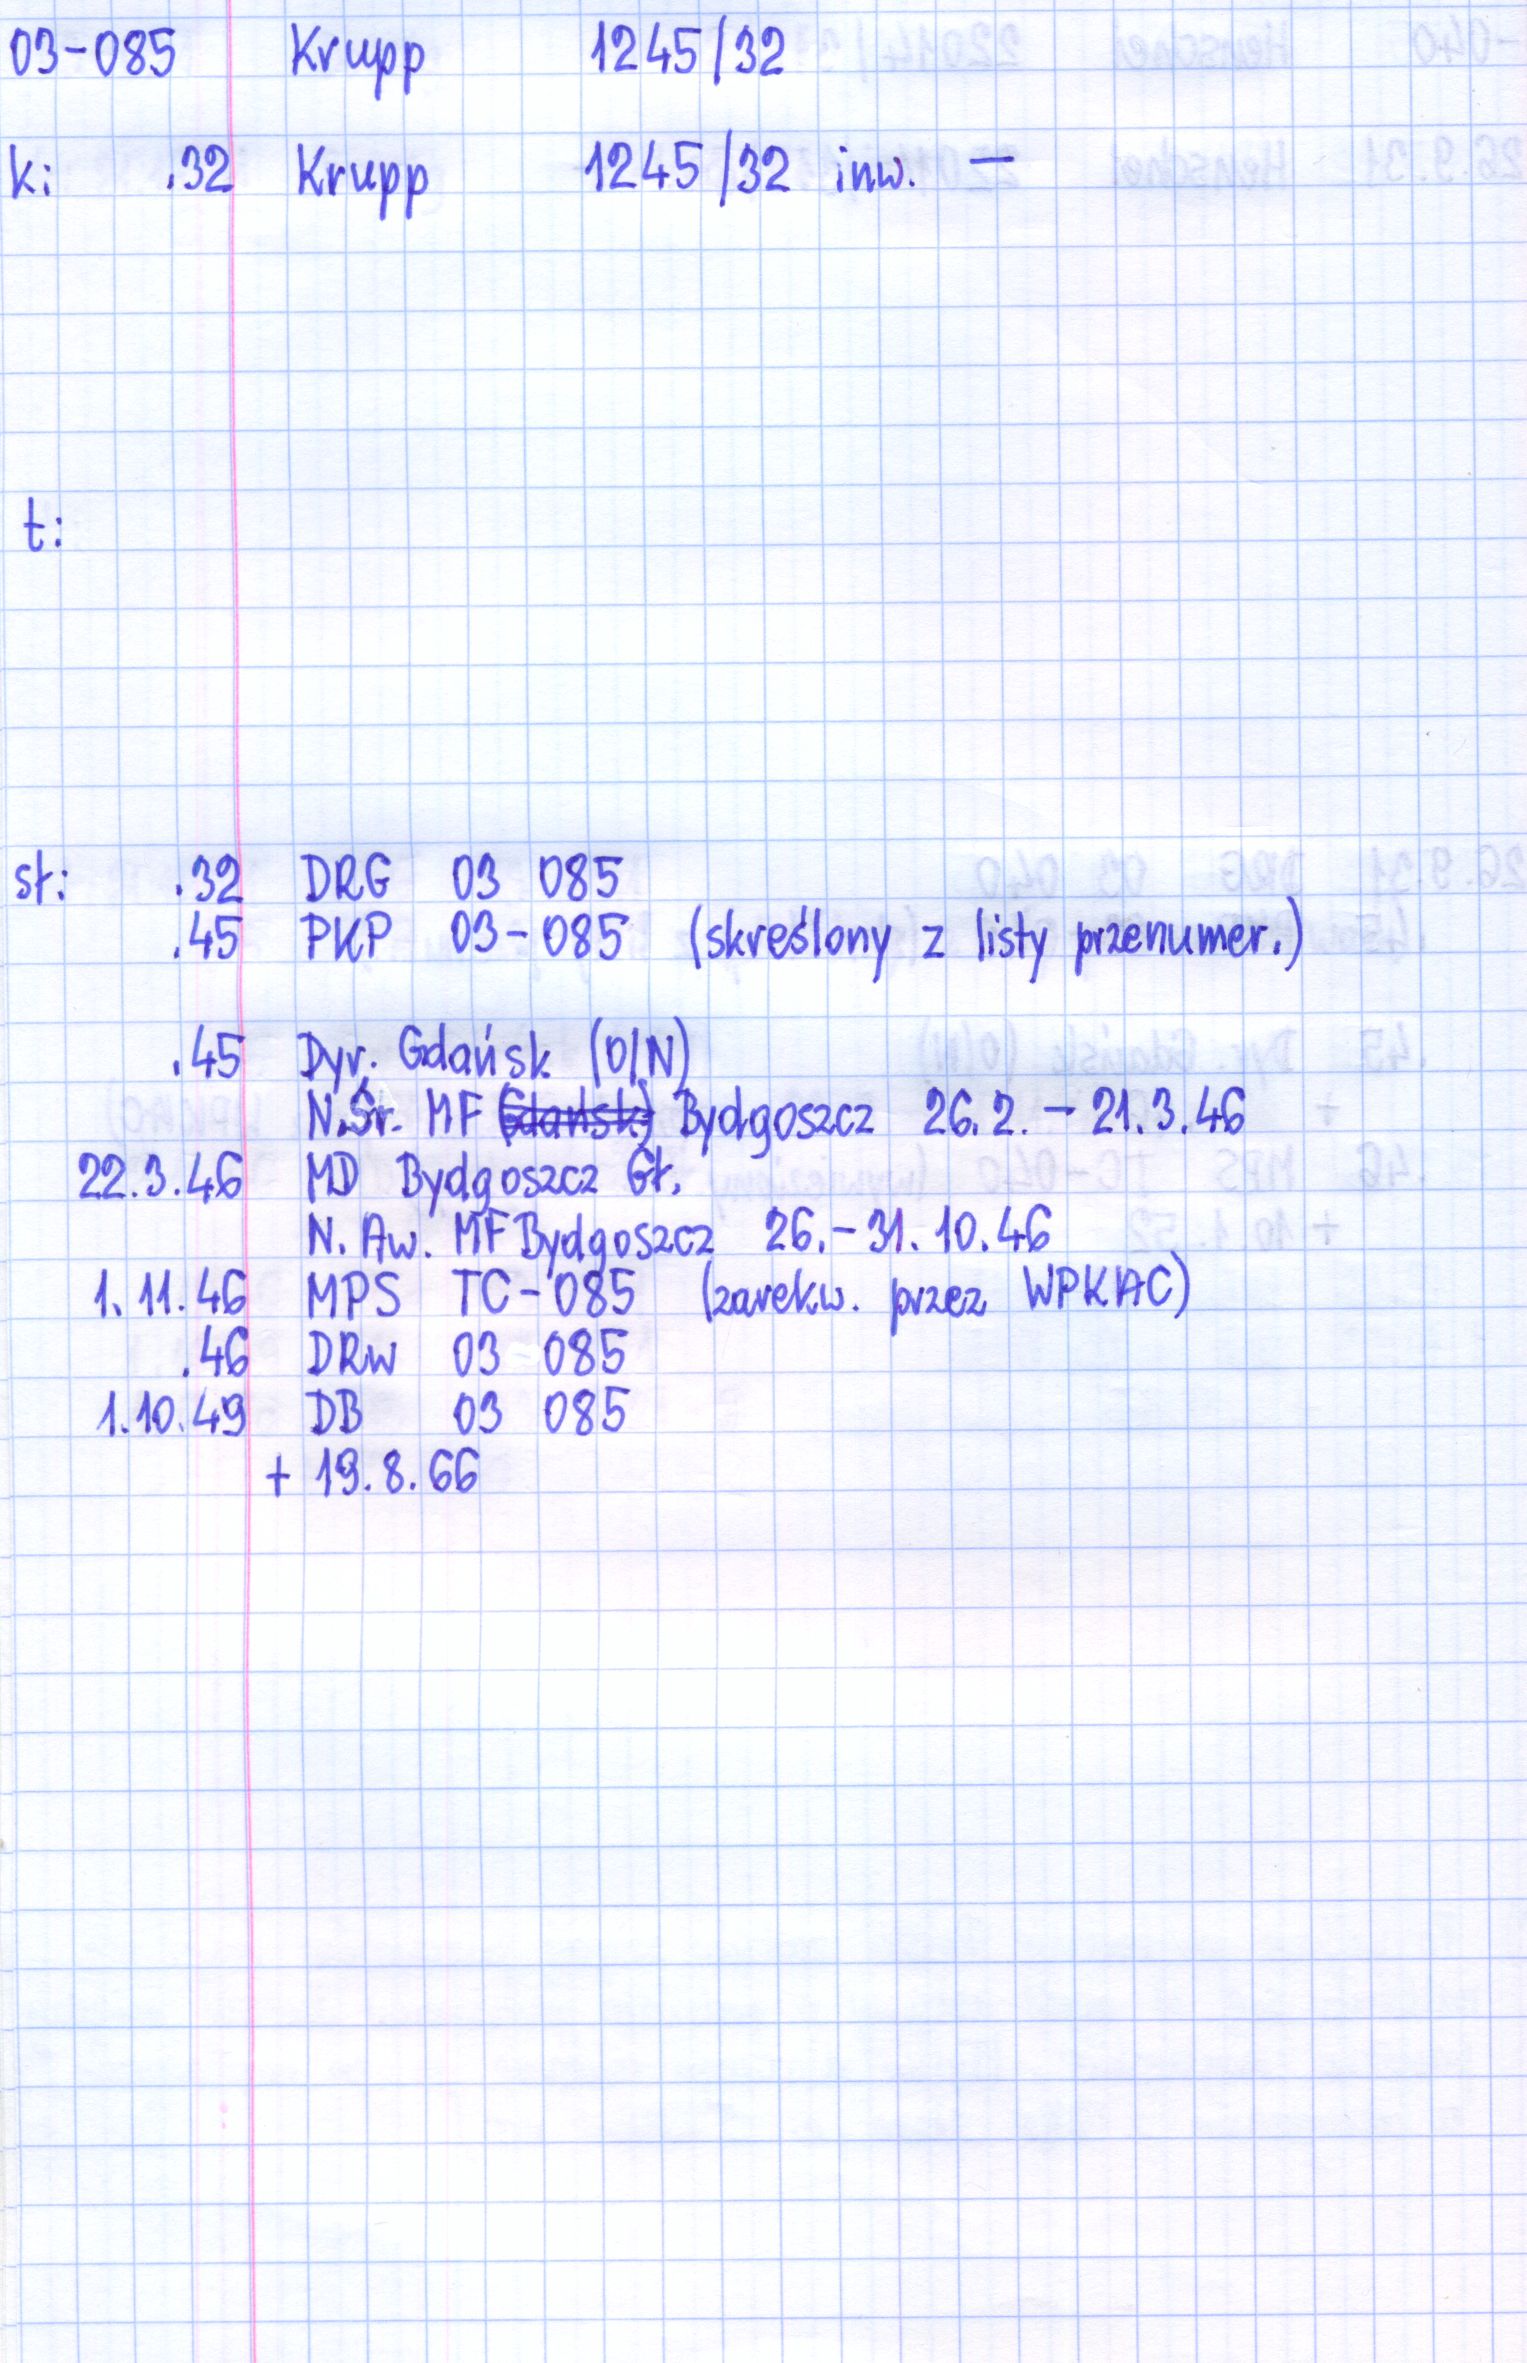 03-085 Krupp 1245/32
k: .32 Krupp 1245/32 inw. —
t:
sł: .32 DRG 03 085
.45 PKP 03-085 (skreślony z listy przenumer.)
.45 Dyr. Gdańsk (O/N)
N.Śr. MF (Gdańsk) Bydgoszcz 26.2. – 21.3.46
22.3.46 MD Bydgoszcz Gł.
N. Aw. MF Bydgoszcz 26.–31.10.46
1.11.46 MPS TC-085 (zarekw. przez WPKAC)
.46 DRw 03 085
1.10.49 DB 03 085
+ 19.8.66